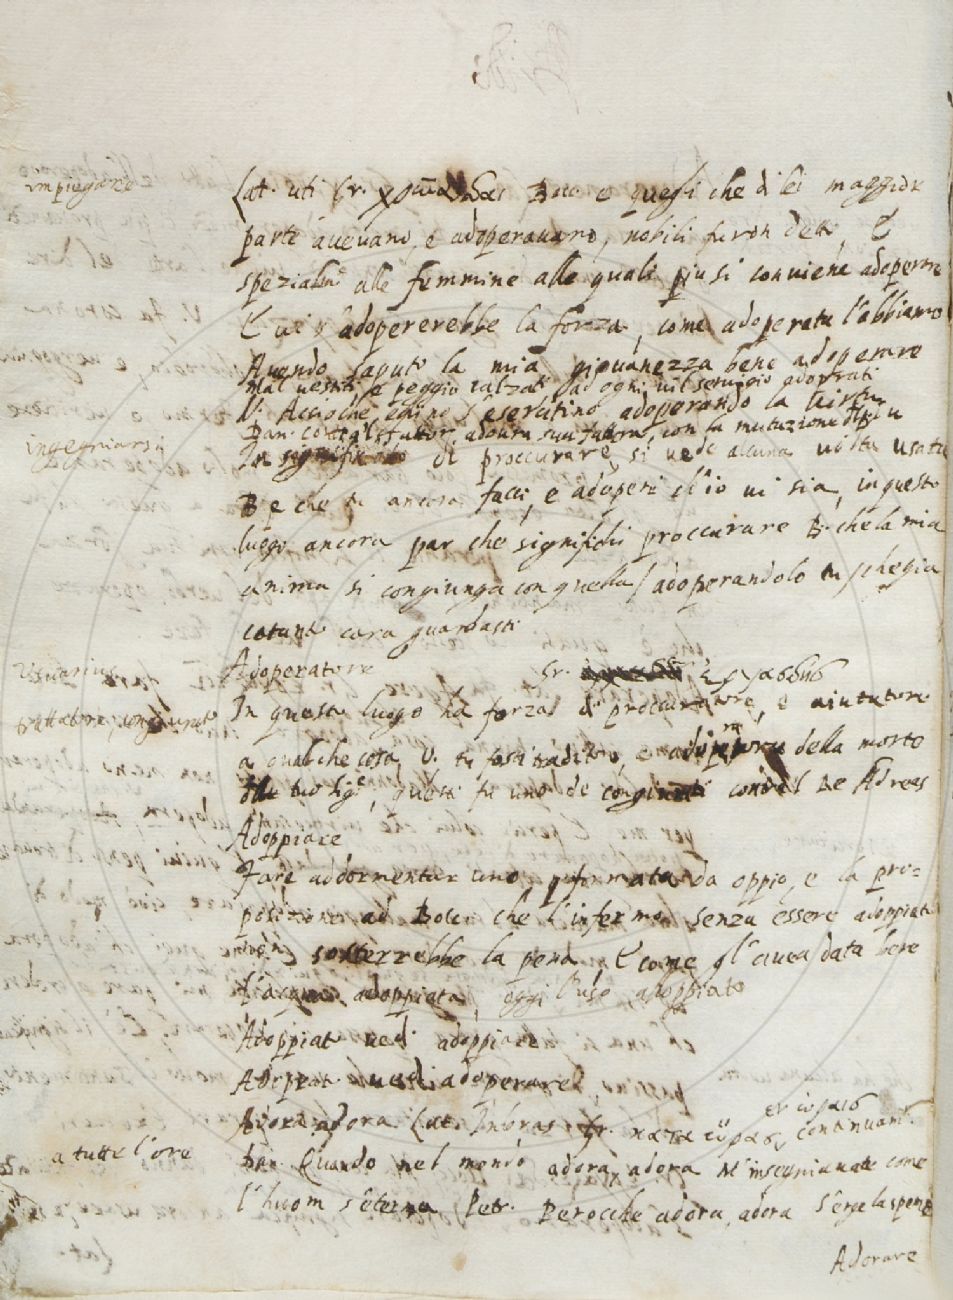 impiegare
Lat. uti Gr. Boc. e quegli che di lei maggior
parte avevano, e adoperavano, nobili furon detti, E
spezialmte alle femmine alle quali piu si conviene adoperare
E vi s'adopererebbe la forza, come adoperata l'abbiamo
Avendo saputo la mia giovanezza bene adoperare
Mal vestiti e peggio calzati ad ogni vil servigio adoprati
Acciochè eglino s'esercitino adoperando la
Dan. con la mutazione
ingegniarsi
In significato di proccurare, si vede alcuna volta usata
B e che tu ancora facci, e adoperi ch'io vi sia, in questo
luogo ancora par che significhi proccurare B. che la mia
anima si congiunga con quella / adoperandolo tu / che gia
cotanto cara guardasti
Usuarius
Adoperatore Gr.
trattatore, congiurato
In questo luogo ha forza di proccuratore, e aiutatore
a qualche cosa, V. tu fosti traditore, e della morte
del tuo Sige, questi fu uno de congiurati contro'l Re Adreas
Adoppiare
Fare addormentar uno, p formata da oppio, e la pro=
posizione ad Bocc. che l'infermo senza essere adoppiato
non sosterrebbe la pena, E come gl'avea data bere
l'acqua adoppiata, oggi l'uso, aloppiato
Adoppiat vedi adoppiare
Adoprat vedi adoperare
Adora adora Lat. In horas Gr. κατα continuam.
a tutte l'ore
Dan. Quando nel mondo adora, adora M'insegniavate come
l'huom s'eterna Petr. Perocchè adora, adora S'erge la speme
Adorare